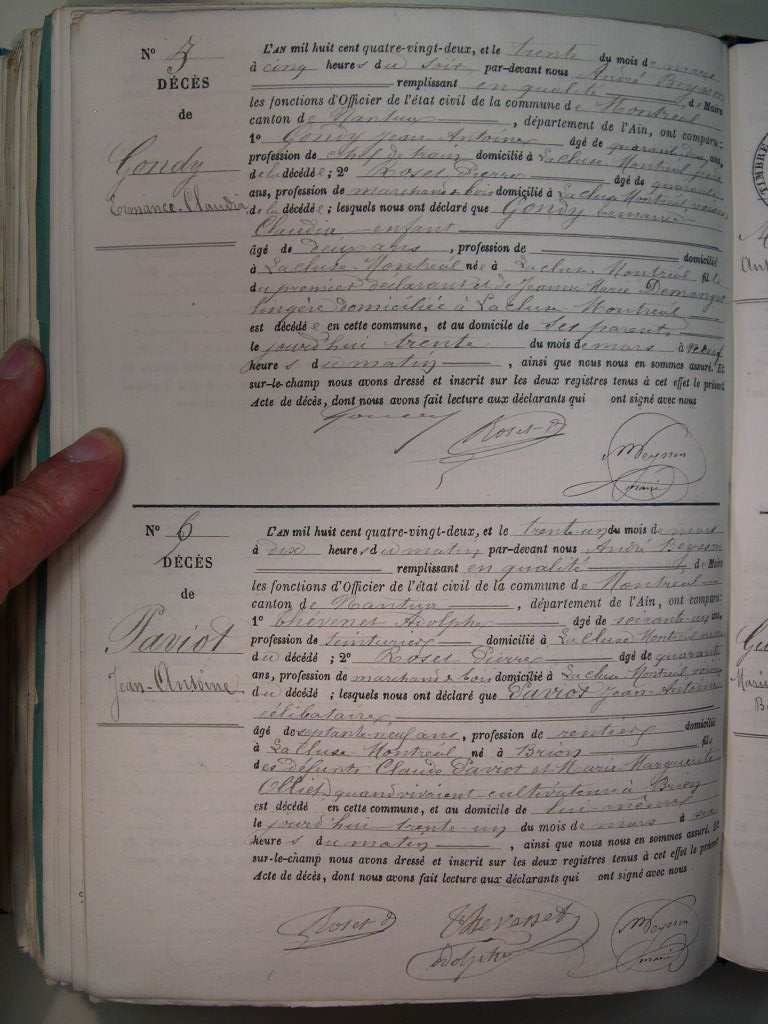 N° 5
DÉCÈS
de
Gondy
Ermance-Claudia
L'AN mil huit cent quatre-vingt-deux, et le trente du mois de mars
à cinq heures du soir par-devant nous André Beysson
remplissant en qualité de Maire
les fonctions d'Officier de l'état civil de la commune de Montreuil
canton de Nantua, département de l'Ain, ont comparu:
1° Gondy Jean Antoine âgé de ans,
profession de chef de train domicilié à La Cluse Montreuil père
de la décédée; 2° Roset Pierre âgé de quarante
ans, profession de marchand de bois domicilié à La Cluse Montreuil voisin
de la décédée; lesquels nous ont déclaré que Gondy Ermance
Claudia enfant
âgé de deux ans, profession de domicilié
à La Cluse Montreuil née à La Cluse Montreuil fille
du premier déclarant et de Jeanne Marie
lingère domiciliée à La Cluse Montreuil
est décédée en cette commune, et au domicile de ses parents
le jourd'hui trente du mois de mars à neuf
heures du matin, ainsi que nous nous en sommes assuré. Et
sur-le-champ nous avons dressé et inscrit sur les deux registres tenus à cet effet le présent
Acte de décès, dont nous avons fait lecture aux déclarants qui ont signé avec nous
Gondy
Roset
Beysson
maire
N° 6
DÉCÈS
de
Paviot
Jean-Antoine
L'AN mil huit cent quatre-vingt-deux, et le trente un du mois de mars
à dix heures du matin par-devant nous André Beysson
remplissant en qualité de Maire
les fonctions d'Officier de l'état civil de la commune de Montreuil
canton de Nantua, département de l'Ain, ont comparu:
1° Adolphe âgé de soixante un ans,
profession de teinturier domicilié à La Cluse Montreuil
du décédé; 2° Roset Pierre âgé de quarante
ans, profession de marchand de bois domicilié à La Cluse Montreuil voisin
du décédé; lesquels nous ont déclaré que Paviot Jean Antoine
célibataire
âgé de septante neuf ans, profession de rentier domicilié
à La Cluse Montreuil né à Brion fils
des défunts Claude Paviot et Marie Marguerite
quand vivaient cultivateurs à
est décédé en cette commune, et au domicile de lui
le jourd'hui trente un du mois de mars à
heures du matin, ainsi que nous nous en sommes assuré. Et
sur-le-champ nous avons dressé et inscrit sur les deux registres tenus à cet effet le présent
Acte de décès, dont nous avons fait lecture aux déclarants qui ont signé avec nous
Roset
Adolphe
Beysson
maire